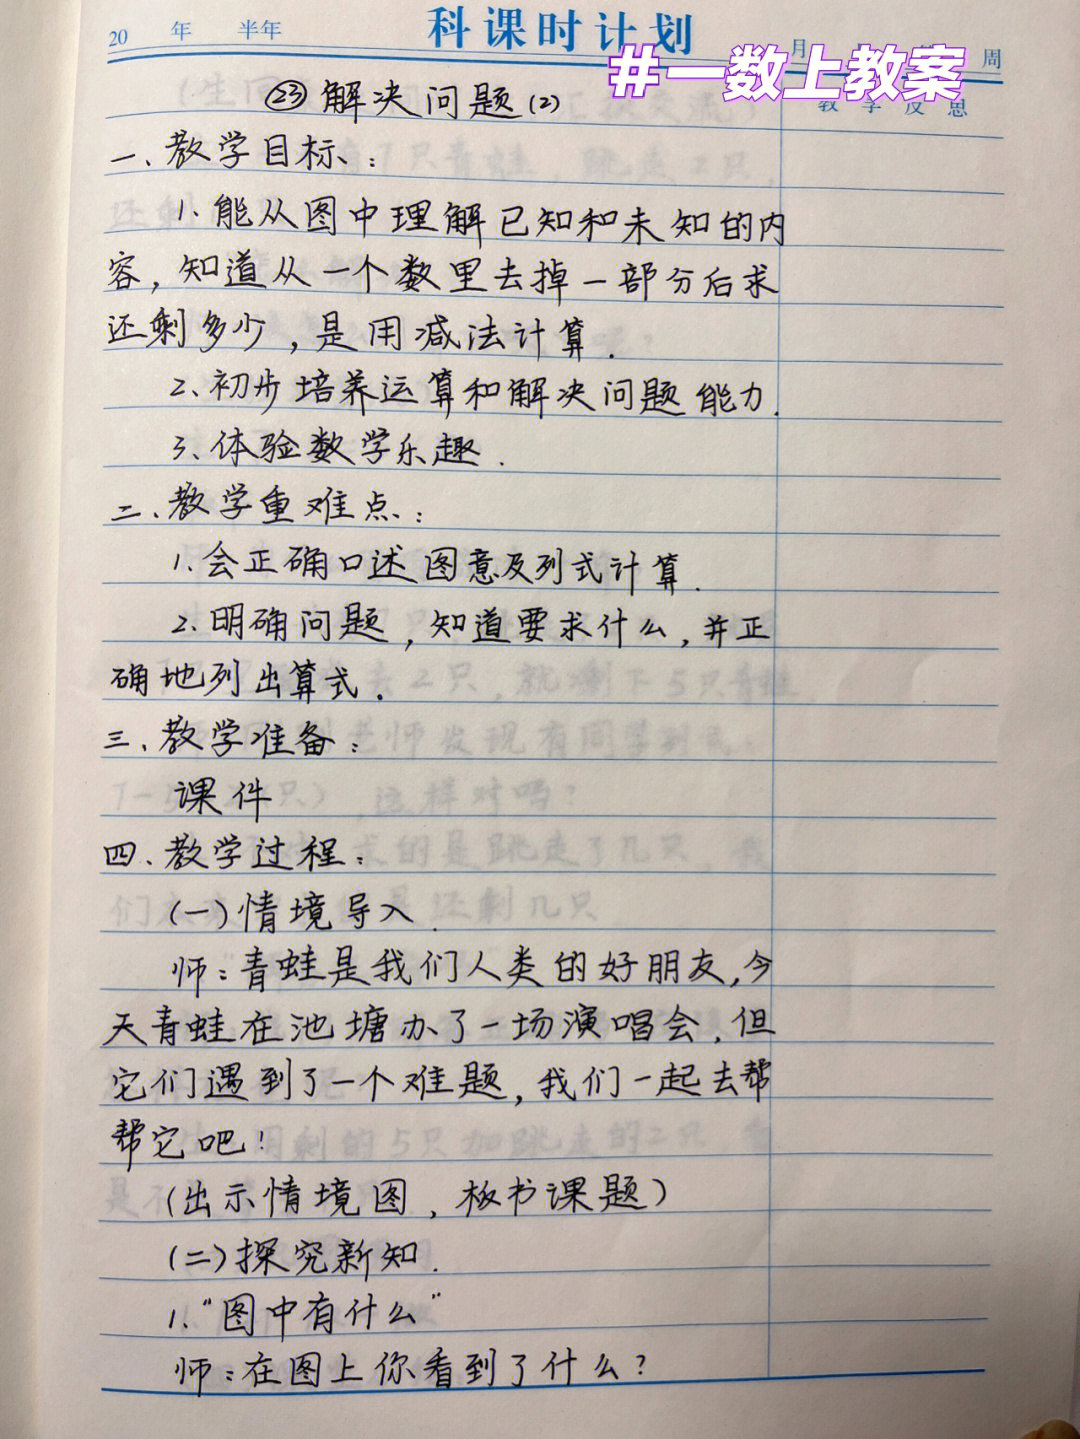 科课时计划
20 年 半年 月 周
#一数上教案
教学反思
㉓解决问题(2)
一、教学目标：
1.能从图中理解已知和未知的内
容，知道从一个数里去掉一部分后求
还剩多少，是用减法计算.
2.初步培养运算和解决问题能力.
3.体验数学乐趣.
二、教学重难点：
1.会正确口述图意及列式计算.
2.明确问题，知道要求什么，并正
确地列出算式.
三、教学准备：
课件
四、教学过程：
(一)情境导入.
师：青蛙是我们人类的好朋友，今
天青蛙在池塘办了一场演唱会，但
它们遇到了一个难题，我们一起去帮
帮它吧！
(出示情境图，板书课题)
(二)探究新知.
1."图中有什么"
师：在图上你看到了什么？